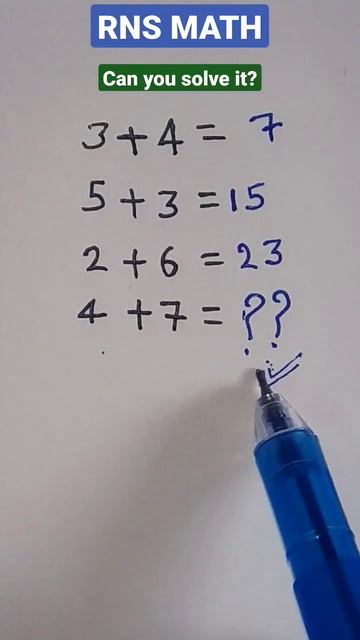 RNS MATH
Can you solve it?
3 + 4 = 7
5 + 3 = 15
2 + 6 = 23
4 + 7 = ??